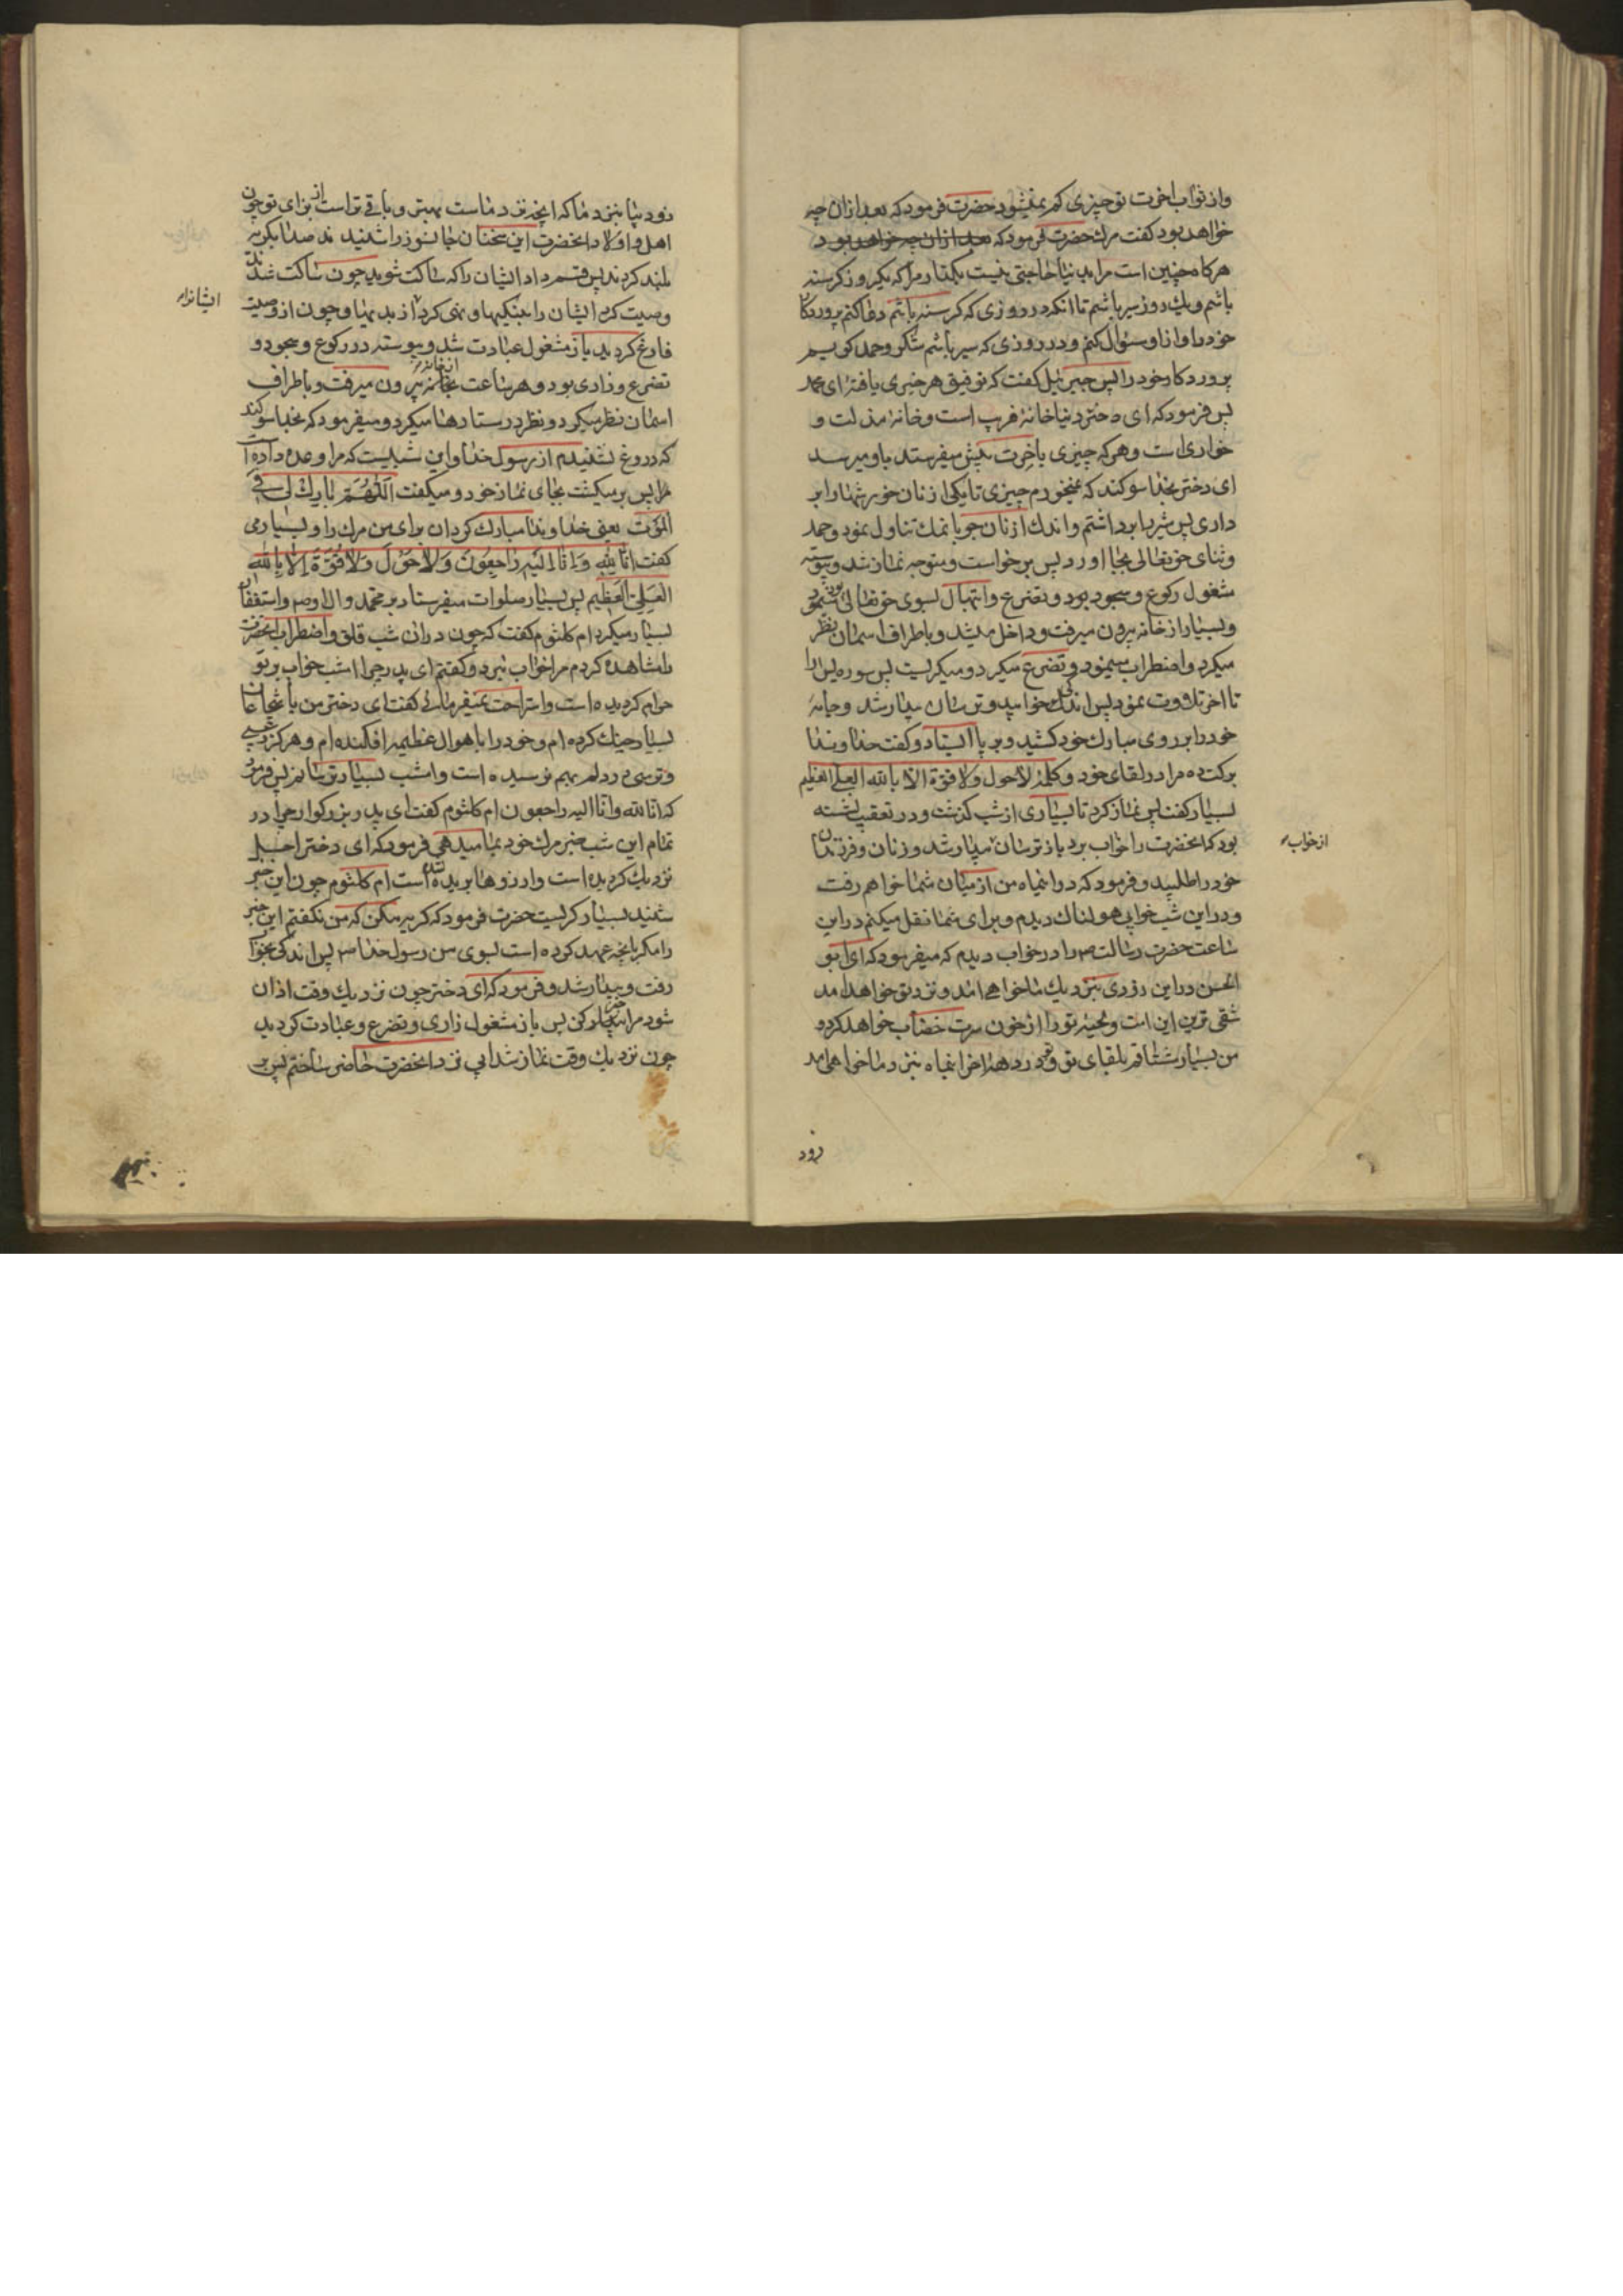 واز ثواب اخرت تو چیزی کم نمیشود حضرت فرمود که بعد ازان چه
خواهد بود کفت مرک حضرت فرمود که بعد ازان چه خواهد بود
هرکاه چنین است مرا بدنیا حاجتی نیست بکذار مرا که یکروز کرسنه
باشم ویک روز سیر باشم تا انکه در روزی که کرسنه باشم دعا کنم پروردکار
خود را و از او سئوال کنم و در روزی که سیر باشم شکر و حمد کویم
پروردکار خود را پس جبرئیل کفت که توفیق هر خیری یافتهٔ ای محمد
پس فرمود که ای دختر دنیا خانهٔ فریب است و خانهٔ مذلت و
خواری است و هر که چیزی باخرت پیش میفرستد باو میرسد
ای دختر بخدا سوکند که نمیخورم چیزی تا یکی از نان خورشها را بر
داری پس شیر را برداشتم و اندک از نان جو با نمک تناول نمود و حمد
و ثنای حقتعالی بجا اورد پس برخواست و متوجه نماز شد و پیوسته
مشغول رکوع و سجود بود و تضرع و ابتهال بسوی حقتعالی مینمود
و بسیار از خانه بیرون میرفت و داخل میشد و باطراف اسمان نظر
میکرد و اضطراب مینمود و تضرع میکرد و میکریست پس سوره یس را
تا اخر تلاوت نمود پس اندکی خوابید و ترسان بیدار شد و جامهٔ
خود را بر روی مبارک خود کشید و بر پا ایستاد و کفت خداوندا
برکت ده مرا در لقای خود و کلمهٔ لاحول ولا قوة الا بالله العلی العظیم
بسیار کفت پس نماز کرد تا بسیاری از شب کذشت و در تعقیب نشسته
بود که انحضرت را خواب برد باز ترسان بیدار شد و زنان و فرزندان
از خواب
خود را طلبید و فرمود که در اینماه من از میان شما خواهم رفت
و در این شب خوابی هولناک دیدم و برای شما نقل میکنم در این
ساعت حضرت رسالت ص را در خواب دیدم که میفرمود که ای ابو
الحسن در این زودی بنزدیک ما خواهی امد و نزد تو خواهد امد
شقی ترین این امت و لحیهٔ تو را از خون سرت خضاب خواهد کرد و
من بسیار مشتاقم بلقای تو و تو در دههٔ اخر اینماه بنزد ما خواهی امد
زود
زود بیا بنزد ما که انچه نزد ماست بهتر و باقی تر است از برای تو چون
اهل و اولاد انحضرت این سخنان جانسوز را شنیدند صدا بکریه
بلند کردند پس قسم داد ایشان را که ساکت شوید چون ساکت شدند
وصیت کرد ایشان را بنیکیها و نهی کرد از بدیها و چون از وصیت
ایشانرا
فارغ کردید باز مشغول عبادت شد و پیوسته در رکوع و سجود و
تضرع و زاری بود و هر ساعت از خانه بیرون میرفت و باطراف
اسمان نظر میکرد و نظر در ستارها میکرد و میفرمود که بخدا سوکند
که دروغ نشنیدم از رسول خدا و این شبیست که مرا وعده داده
پس بر میکشت بجای نماز خود و میکفت اَللّهُمَّ بارِک لی فی
المَوت یعنی خداوندا مبارک کردان برای من مرک را و بسیار می
کفت اِنّا لِلّهِ وَ اِنّا اِلَیهِ راجِعُونَ وَلا حَوْلَ وَلا قُوَّةَ اِلّا بِاللّه
العَلِیّ العَظیم پس بسیار صلوات میفرستاد بر محمد و ال او ص و استغفار
بسیار میکرد ام کلثوم کفت که چون در ان شب قلق و اضطراب انحضرت
را مشاهده کردم مرا خواب نبرد و کفتم ای پدر چرا امشب خواب بر تو
حرام کردیده است و استراحت نمیفرمائی کفت ای دختر من با شجاعان
بسیار جنک کرده ام و خود را باهوال عظیمه افکنده ام و هرکز رعبی
و ترسی در دلم بهم نرسیده است و امشب بسیار ترسانم پس فرمود
که انا لله و انا الیه راجعون ام کلثوم کفت ای پدر بزرکوار چرا در
تمام این شب خبر مرک خود بما میدهی فرمود که ای دختر اجل
نزدیک کردیده است و ارزوها بریده شده است ام کلثوم چون این خبر
شنید بسیار کریست حضرت فرمود که کریه مکن که من نکفتم این خبر
را مکر بانچه عهد کرده است بسوی من رسول خدا ص پس اندکی بخواب
رفت و بیدار شد و فرمود که ای دختر چون نزدیک وقت اذان
شود مرا خبر کن پس باز مشغول زاری و تضرع و عبادت کردید
چون نزدیک وقت نماز شد ابی نزد انحضرت حاضر ساختم پس بر